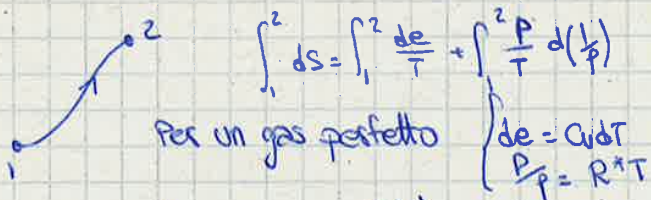 2 ∫₁² dS = ∫₁² de/T + ∫₁² P/T d(1/ρ)
1 Per un gas perfetto { de = CvdT
P/ρ = R*T